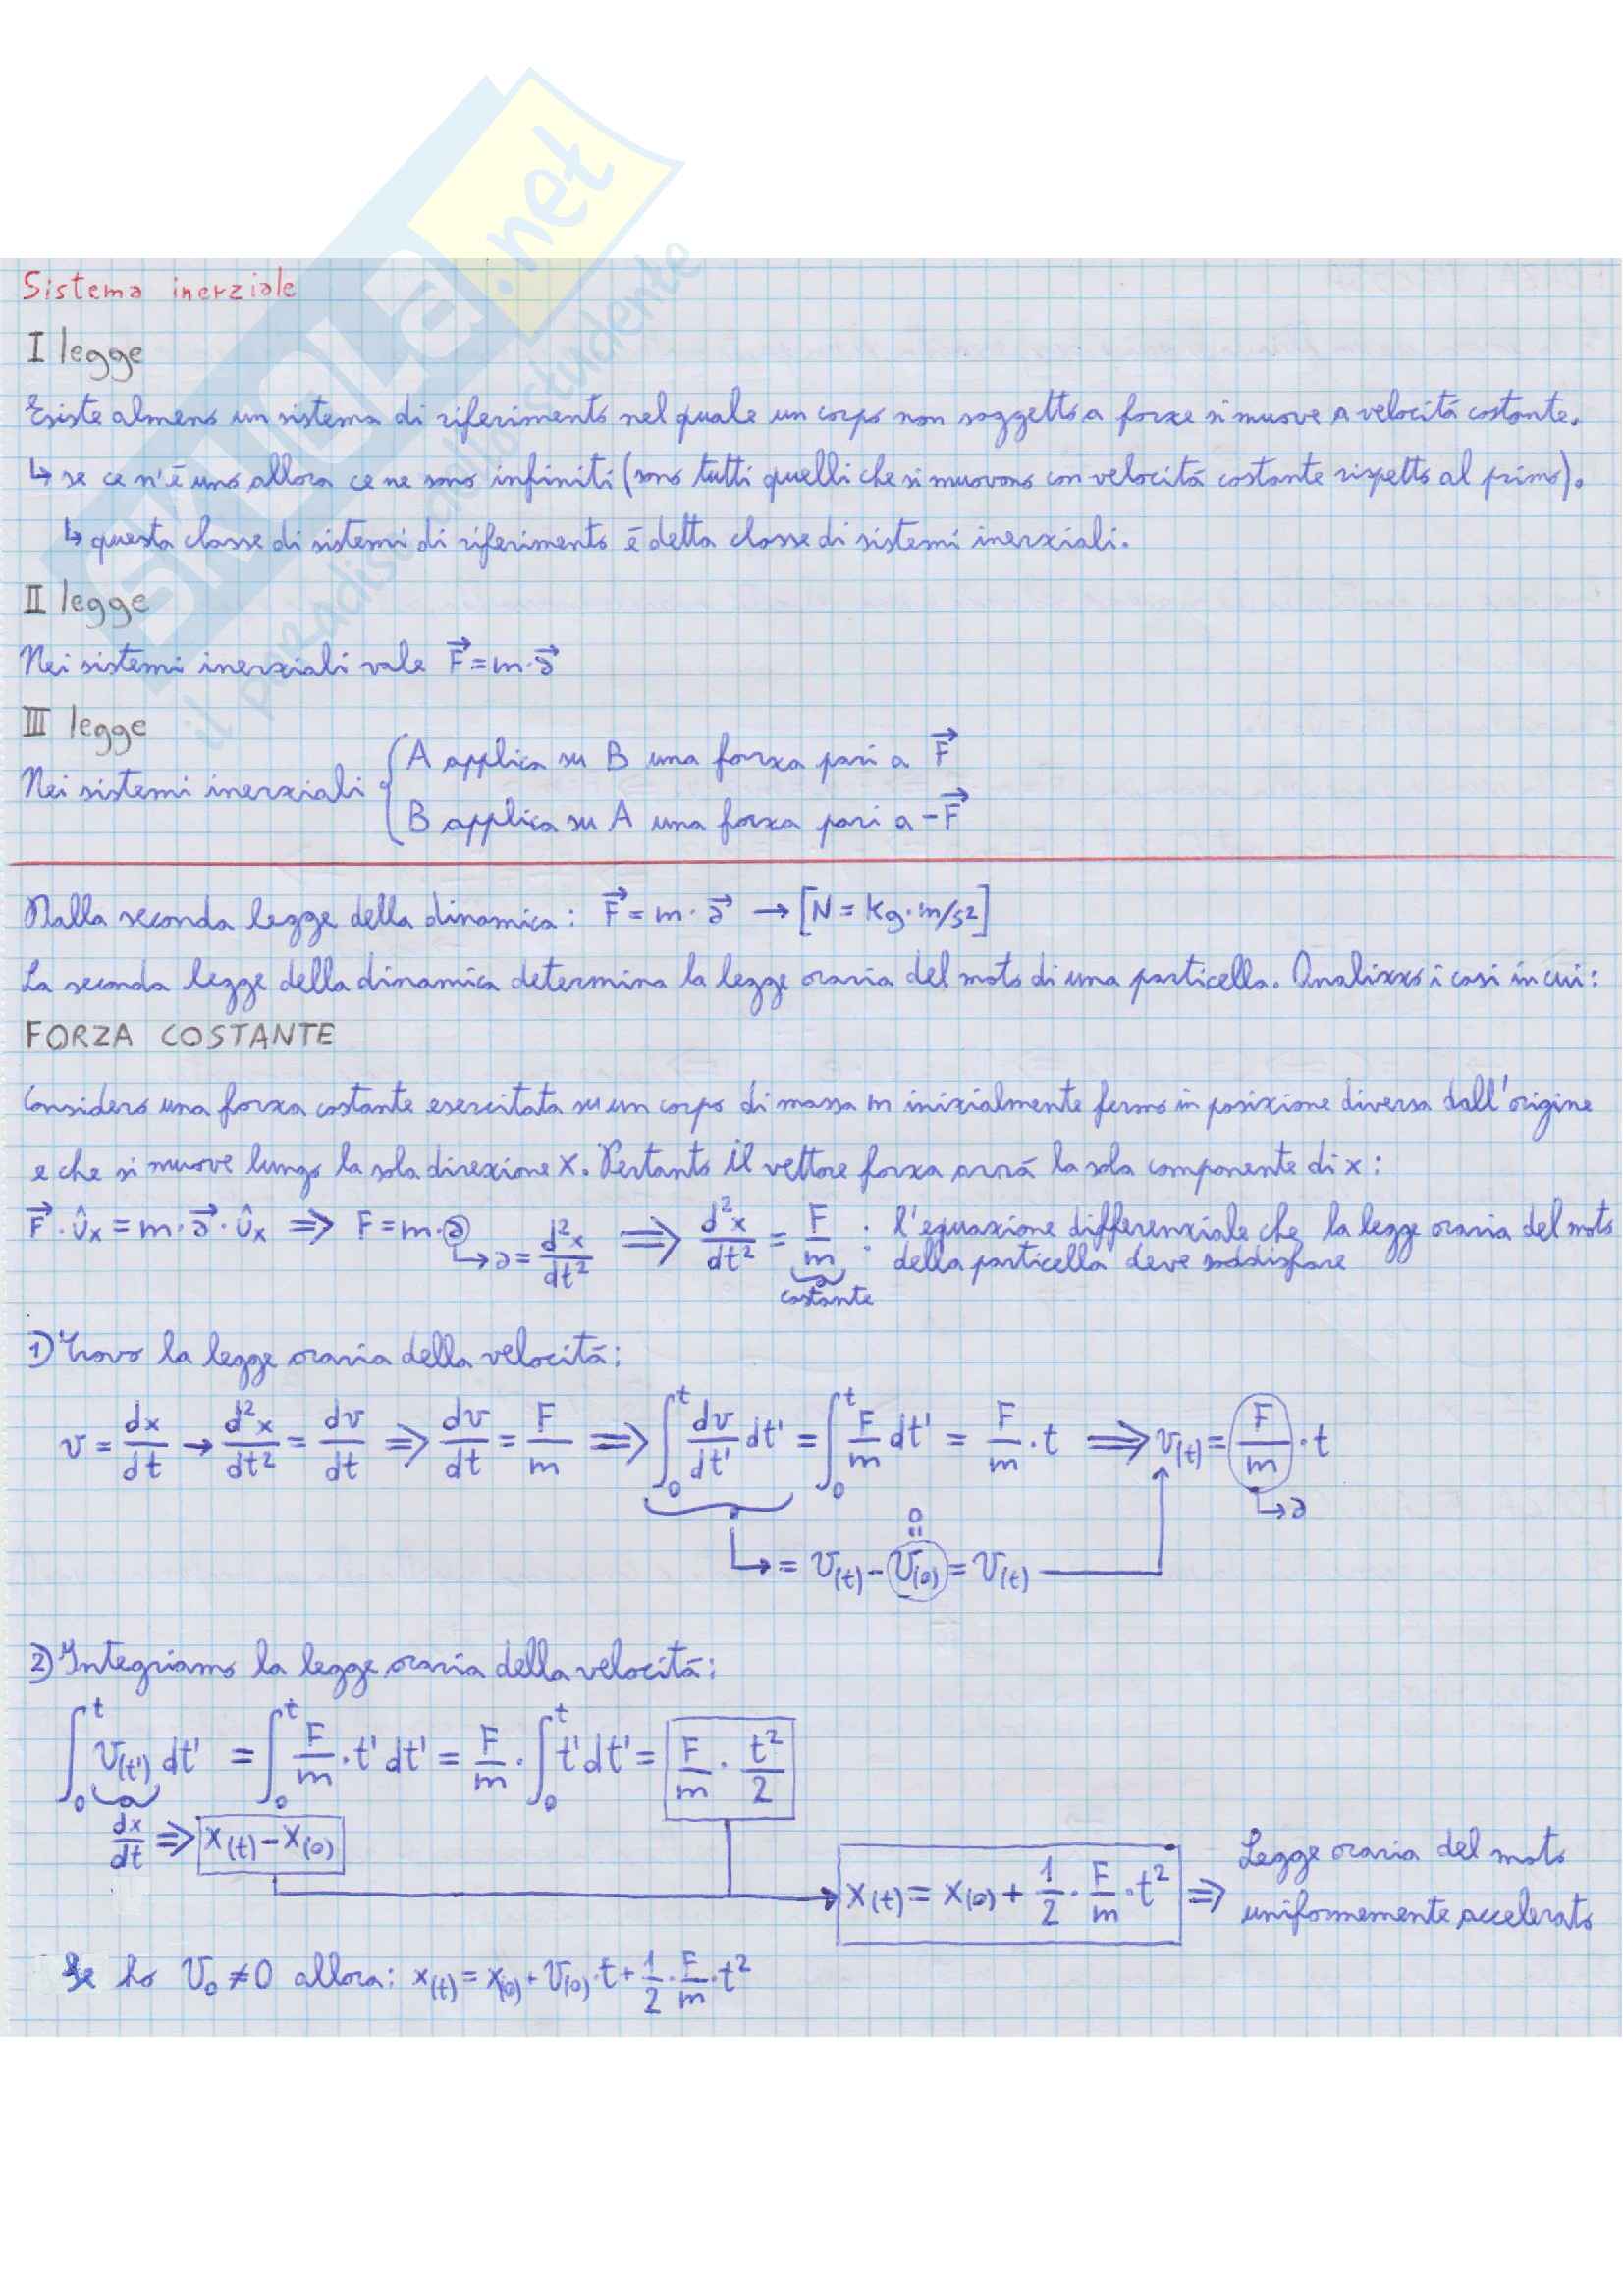 SKUOLA.net
il paradiso dello studente
Sistema inerziale
I legge
Esiste almeno un sistema di riferimento nel quale un corpo non soggetto a forze si muove a velocità costante.
↳ se ce n'è uno allora ce ne sono infiniti (sono tutti quelli che si muovono con velocità costante rispetto al primo).
↳ questa classe di sistemi di riferimento è detta classe di sistemi inerziali.
II legge
Nei sistemi inerziali vale F⃗ = m·a⃗
III legge
Nei sistemi inerziali { A applica su B una forza pari a F⃗
B applica su A una forza pari a -F⃗
Dalla seconda legge della dinamica: F⃗ = m·a⃗ → [N = kg·m/s²]
La seconda legge della dinamica determina la legge oraria del moto di una particella. Analizzo i casi in cui:
FORZA COSTANTE
Considero una forza costante esercitata su un corpo di massa m inizialmente fermo in posizione diversa dall'origine
e che si muove lungo la sola direzione x. Pertanto il vettore forza avrà la sola componente di x:
F⃗·ûx = m·a⃗·ûx ⇒ F = m·a ↳ a = d²x/dt² ⇒ d²x/dt² = F/m : l'equazione differenziale che la legge oraria del moto
costante
della particella deve soddisfare
1) Trovo la legge oraria della velocità:
v = dx/dt → d²x/dt² = dv/dt ⇒ dv/dt = F/m ⇒ ∫₀ᵗ dv/dt' dt' = ∫₀ᵗ F/m dt' = F/m · t ⇒ v(t) = F/m · t
↳ a
0
=
↳ = v(t) - v(0) = v(t)
2) Integriamo la legge oraria della velocità:
∫₀ᵗ v(t') dt' = ∫₀ᵗ F/m · t' dt' = F/m · ∫₀ᵗ t' dt' = F/m · t²/2
dx/dt ⇒ x(t) - x(0)
x(t) = x(0) + 1/2 · F/m · t² ⇒ Legge oraria del moto
uniformemente accelerato
Se ho v₀ ≠ 0 allora: x(t) = x(0) + v(0)·t + 1/2 · F/m · t²